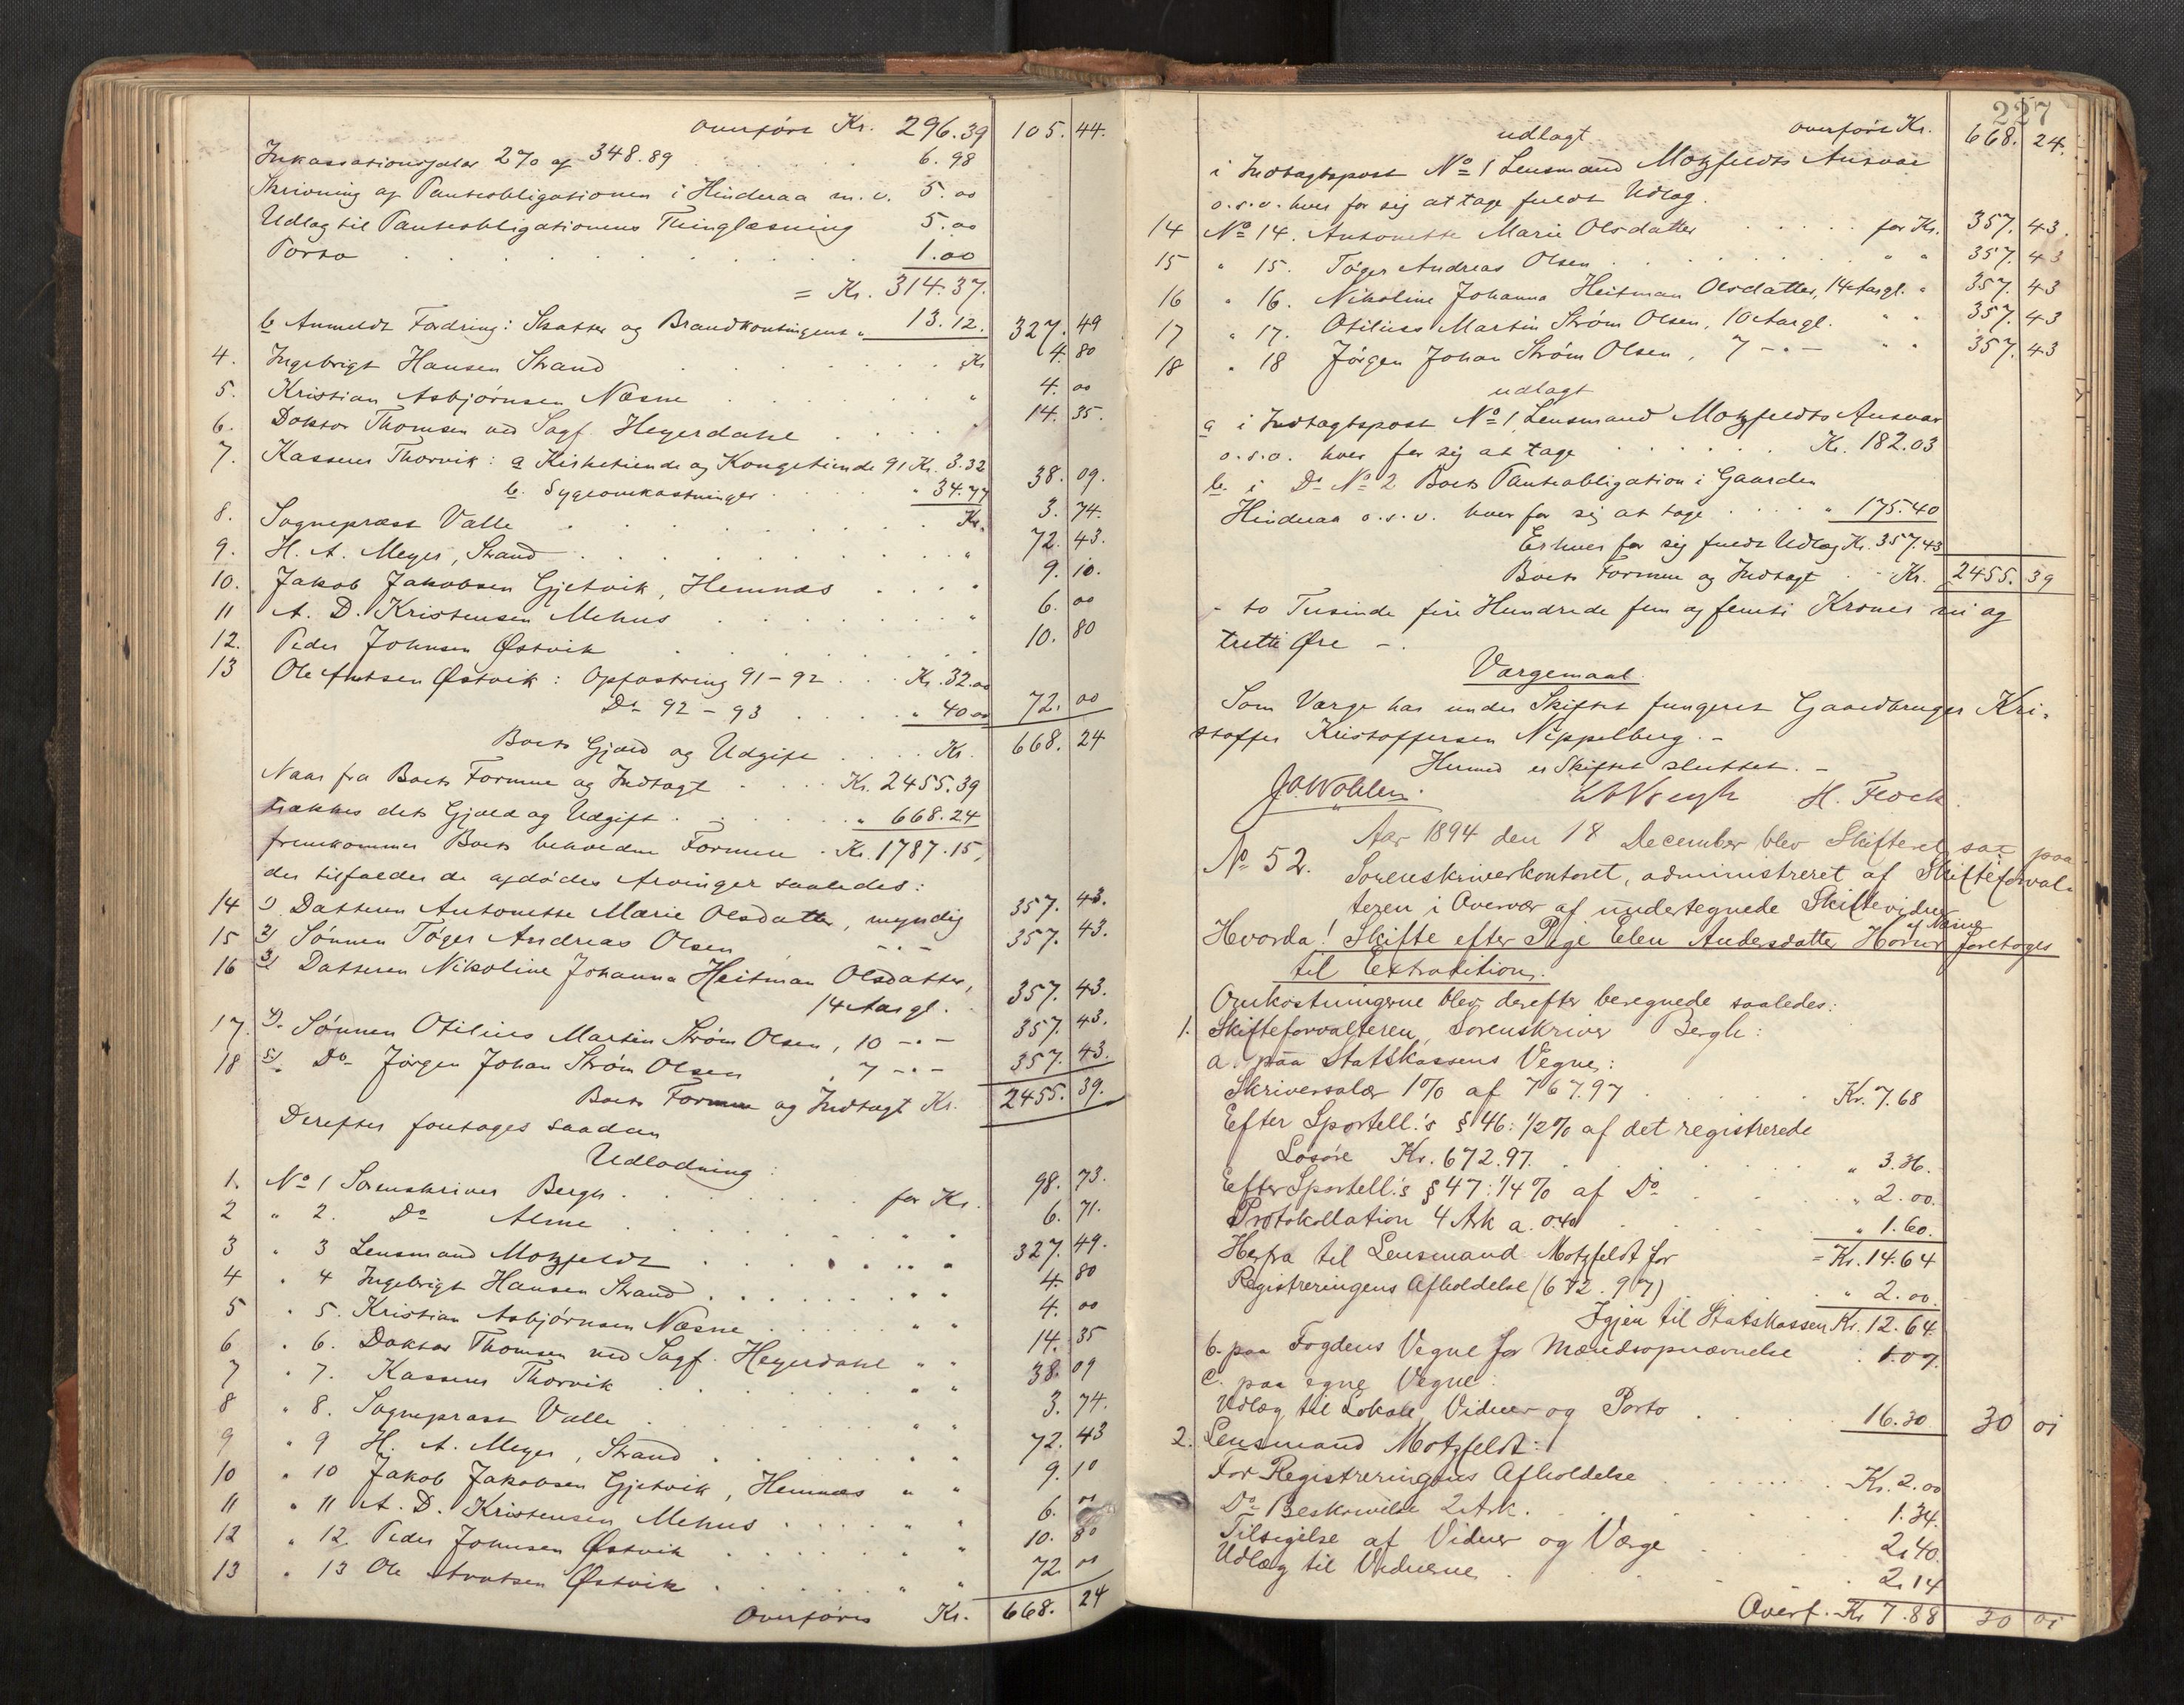 overført Kr. 296.39 105.44.
Inkassationssalær 2% af 348.89 . . . 6.98
Skrivning af Panteobligationen i Hinderaa m. v. 5.00
Udlæg til Panteobligationens Thinglæsning 5.00
Porto . . . 1.00
= Kr. 314.37.
b Anmeldt Fordring: Skatter og Brandkontingent " 13.12. 327.49
4. Ingebrigt Hansen Strand . . . Kr 4.80
5. Kristian Asbjørnsen Næsne . . . " 4.00
6. Doktor Thomsen ved Sagf. Heyerdahl . . . " 14.35.
7. Kasserer Thorvik: a Kirketiende og Kongetiende 91 Kr. 3.32
b. Sygeomkostninger . . . " 34.77 38.09.
8. Sogneprest Valle . . . Kr. 3.74.
9. H. A. Meyer, Strand . . . " 72.43.
10. Jakob Jakobsen Gjetvik, Hemnæs . . . " 9.10.
11 A. D. Kristensen Mehus . . . " 6.00
12. Peder Johnsen Østvik . . . 10.80
13 Ole Antsen Østvik: Opfostring 91–92 . . Kr. 32.00
Do 92 – 93 . . . " 40.00 72.00
Boets Gjæld og Udgift . . . Kr. 668.24
Naar fra Boets Formue og Indtægt . . . Kr. 2455.39
trækkes dets Gjæld og Udgift . . . " 668.24
fremkommer Boets beholdne Formue . Kr. 1787.15,
der tilfalder de afdødes Arvinger saaledes:
14 1) Datteren Antonette Marie Olsdatter, myndig 357.43.
15 2) Sønnen Tøger Andreas Olsen, –"– 357.43.
16 3) Datteren Nikoline Johanna Heitman Olsdatter,
14 Aar gl. 357.43.
17. 4). Sønnen Otilius Martin Strøm Olsen, 10 –"– 357.43.
18 5). Do Jørgen Johan Strøm Olsen . 7 –"– 357.43.
Boets Formue og Indtægt Kr. 2455.39.
Derefter foretoges saadan
Udlodning:
1. No 1 Sorenskriver Bergh . . . for Kr. 98.73.
2 " 2. Do Alme . . . " " 6.71.
3 " 3 Lensmand Motzfeldt . . . " " 327.49.
4 " 4 Ingebrigt Hansen Strand . . . " " 4.80
5 " 5. Kristian Asbjørnsen Næsne . . . " " 4.00
6 " 6. Doktor Thomsen ved Sagf. Heyerdahl " " 14.35
7 " 7. Kasserer Thorvik . . . " " 38.09
8 " 8. Sogneprest Valle . . . " " 3.74.
9 " 9 H. A. Meyer, Strand . . . " " 72.43
10 " 10 Jakob Jakobsen Gjetvik, Hemnæs " " 9.10
11 " 11 A. D. Kristensen Mehus . . . " " 6.00
12 " 12. Peder Johnsen Østvik . . . " 10.80
13 " 13 Ole Antsen Østvik . . . " " 72.00
Overføres Kr. 668.24
227
udlagt overført Kr. 668.24.
i Indtægtspost No 1 Lensmand Motzfeldts Ansvar
o.s.v. hver for sig at tage fuldt Udlæg.
14 No 14. Antonette Marie Olsdatter . . . for Kr. 357.43.
15 " 15. Tøger Andreas Olsen . . . " " 357.43
16 " 16. Nikoline Johanna Heitman Olsdatter, 14 Aar gl. " 357.43
17 " 17. Otilius Martin Strøm Olsen, 10 Aar gl. " " 357.43
18 " 18 Jørgen Johan Strøm Olsen, 7 –"– " " 357.43
udlagt
a i Indtægtspost No 1 Lensmand Motzfeldts Ansvar
o.s.v. hver for sig at tage . . . Kr. 182.03
b. i Do No 2 Boets Panteobligation i Gaarden
Hinderaa o.s.v. hver for sig at tage . . . " 175.40
Er hver for sig fuldt Udlæg Kr. 357.43
Boets Formue og Indtægt . . Kr. 2455.39
– to Tusinde fire Hundrede fem og femti Kroner ni og
tretti Øre –.
Værgemaal.
Som Værge har under Skiftet fungeret Gaardbruger Kri-
stoffer Kristoffersen Nippelberg. –
Hermed er Skiftet sluttet. –
H. Flock.
Aar 1894 den 18 December blev Skifteret sat paa
No 52. Sorenskriverkontoret, administreret af Skifteforval-
teren i Overvær af undertegnede Skiftevidner
Hvorda! Skifte efter Pige Elen Andersdatter foretoges
til Extradition.
Omkostningerne blev derefter beregnede saaledes:
1. Skifteforvalteren, Sorenskriver Bergh:
a. paa Statskassens Vegne:
Skriversalær 1% af 767.97 . . . Kr. 7.68
Efter Sportell.'s § 46: 1/2% af det registrerede
Løsøre Kr. 672.97. . . . " 3.36.
Efter Sportell.'s § 47: 1/4% af Do . . . " 2.00.
Protokollation 4 Ark a 0.40 . . . " 1.60.
= Kr. 14.64
Herfra til Lensmand Motzfeldt for
Registreringens Afholdelse (672.97) . " 2.00.
Igjen til Statskassen Kr. 12.64.
b. paa Fogdens Vegne for Mændsopnævnelse . 1.07.
c. paa egne Vegne:
Udlæg til Lokale, Vidner og Porto . . . 16.30 30 01
2. Lensmand Motzfeldt:
For Registreringens Afholdelse . . . Kr. 2.00
Do Beskrivelse 2 Ark. . . . 1.34.
Tilsigelse af Vidner og Værge . . . 2.40.
Udlæg til Vidnerne . . . 2.14
Overf. Kr 7.88 30 01